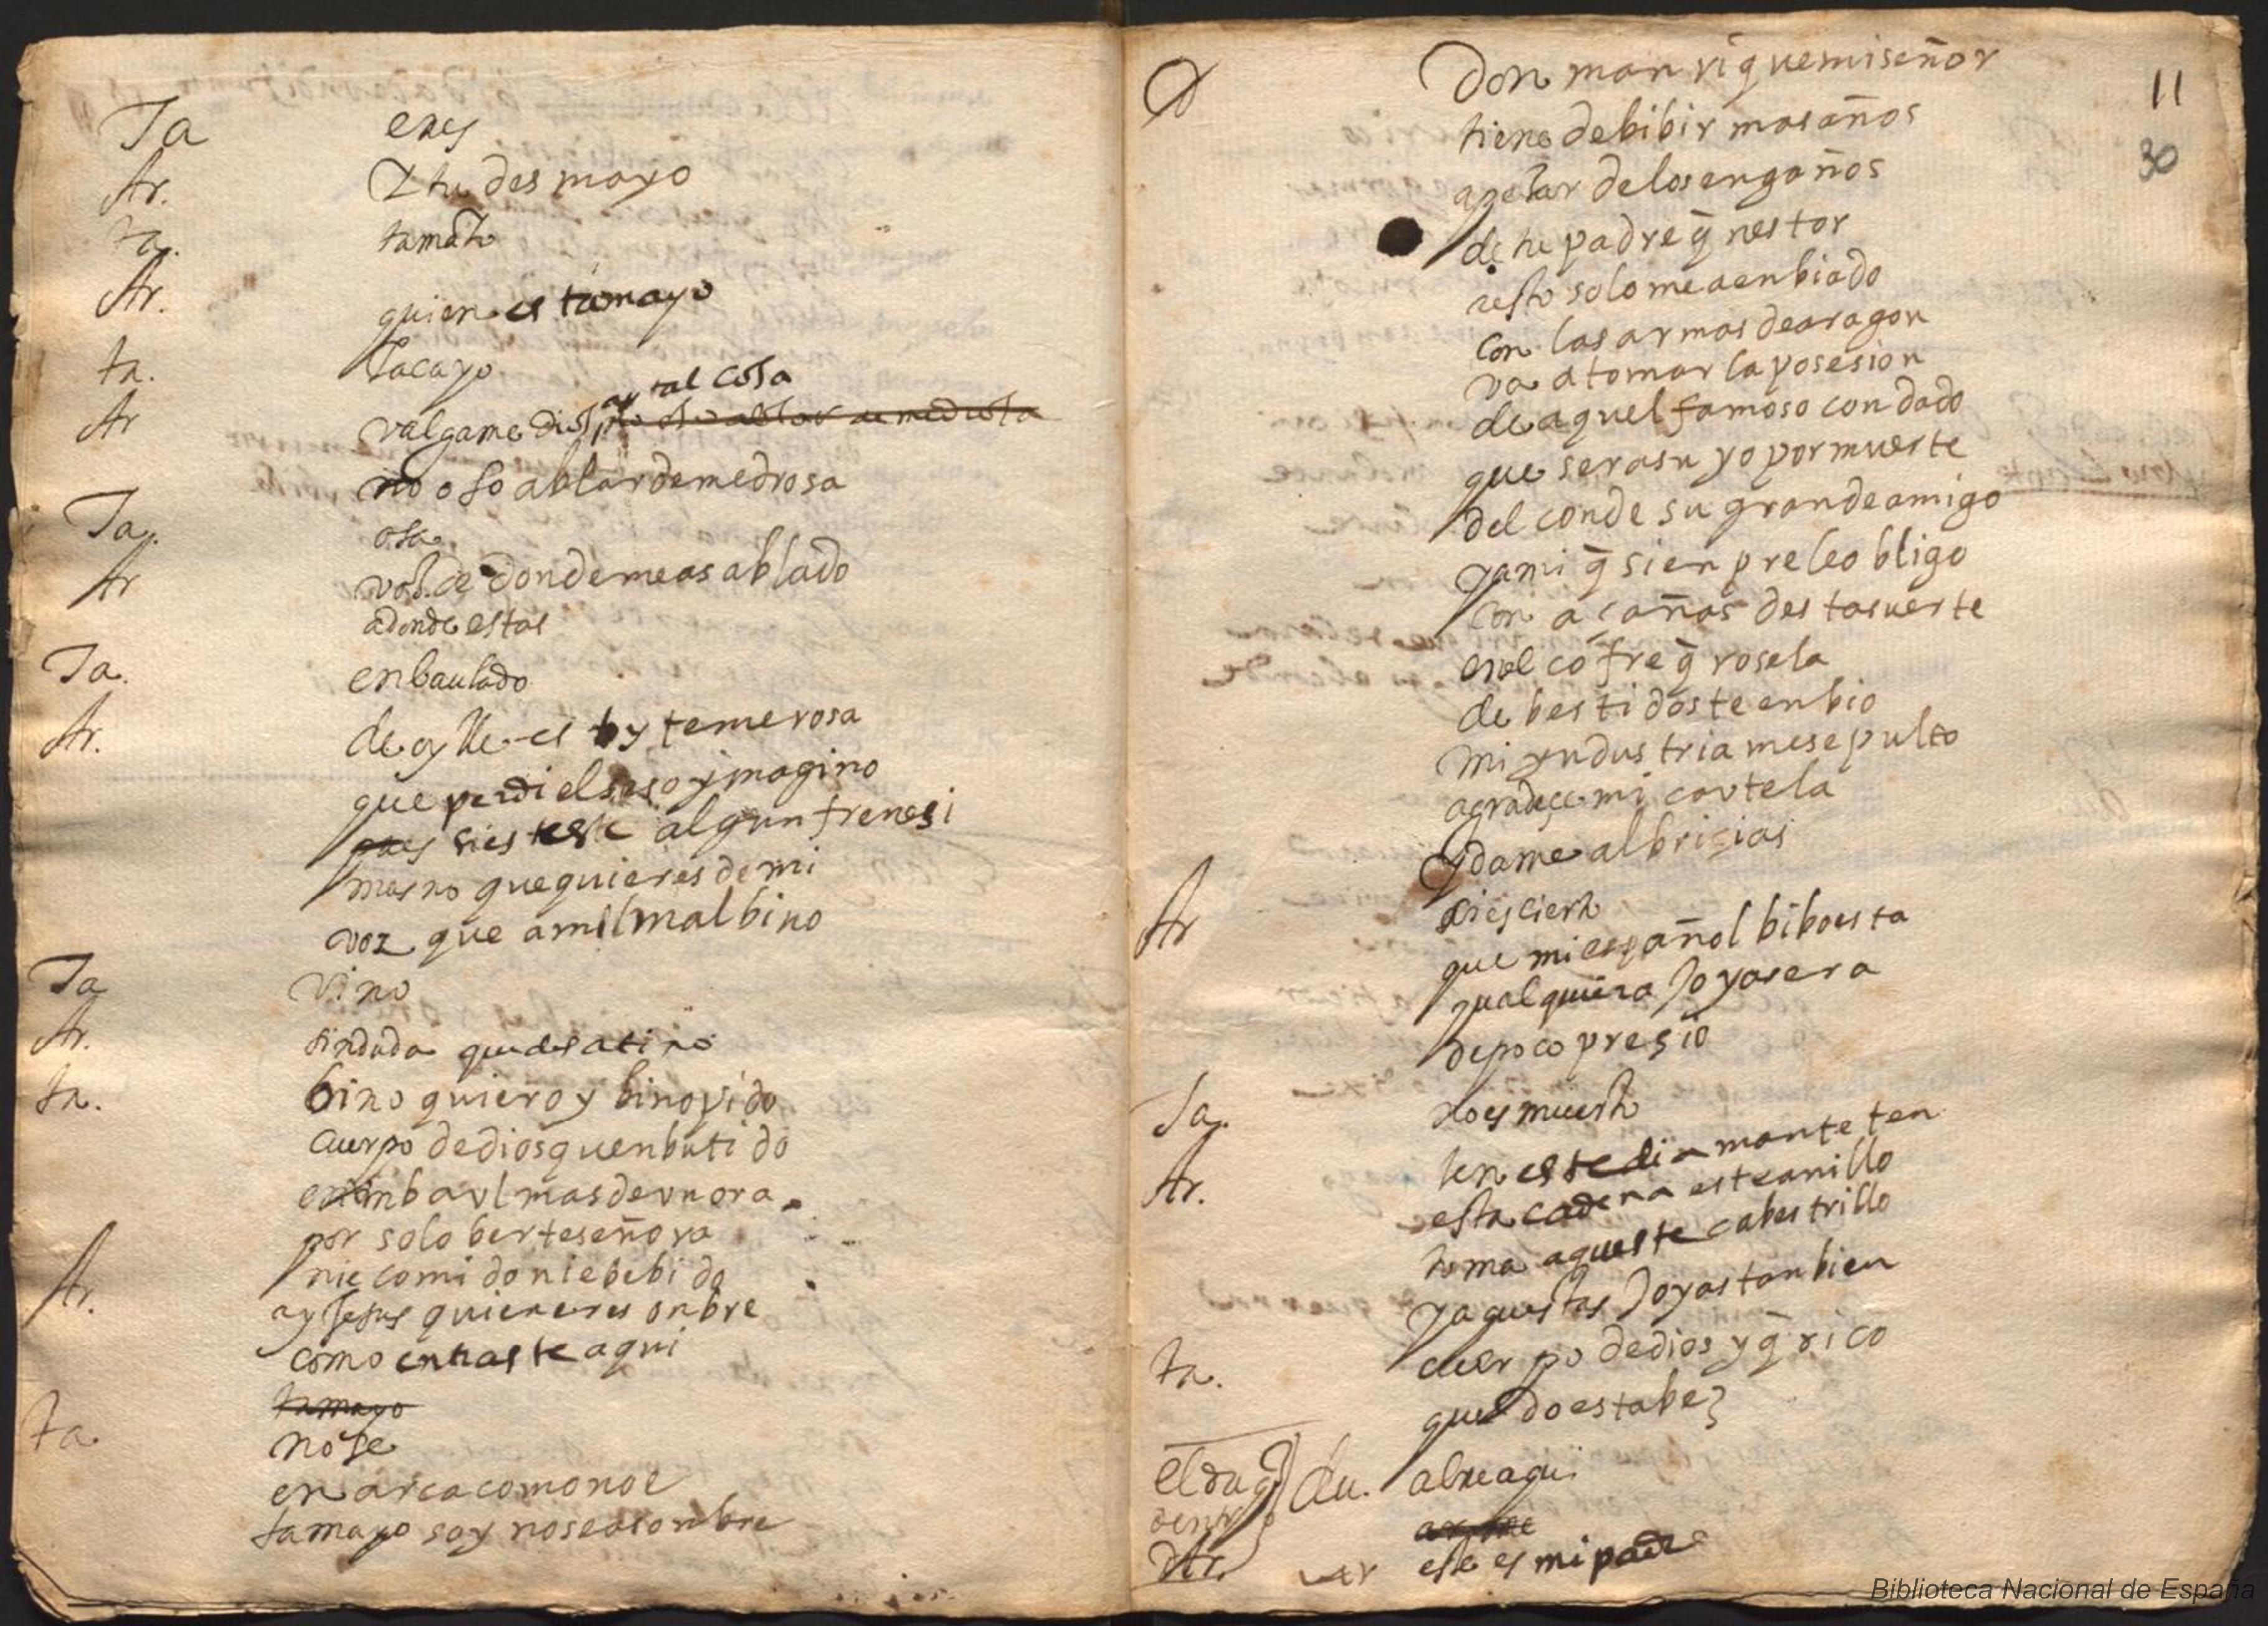 Ta eres
Ar. I tu desmayo
ta. tamate
Ar. quien es tamayo
ta. lacayo
ay tal cosa
Ar valgame dios
no oso ablar de medrosa
Ta. osa
Ar voz de donde me as ablado
adonde estas
Ta. enbaulado
Ar. de oylle estoy temerosa
que perdi el seso y imagino
pues si es este algun frenesi
mas no que quieres de mi
voz que a mi mal bino
Ta vino
Ar. sin duda que desatino
ta. bino quiero y bino pido
cuerpo de dios quenbutido
en un baul mas de un ora
por solo berte señora
ni e comido ni e bebido
Ar. ay Jesus quien eres onbre
como entraste aqui
tamayo
ta. no se
en arca como noe
tamayo soy no se asonbre
11
30
Don manrique mi señor
tiene de bibir mas años
apesar de los engaños
de tu padre q̄ nestor
resto solo me a enbiado
con las armas de aragon
va a tomar la posesion
de aquel famoso condado
que sera suyo por muerte
del conde su grande amigo
y a mi q̄ sienpre le obligo
con açañas desta suerte
en el cofre q̄ rosela
de bestidos te enbio
mi yndustria me sepulto
agradeçe mi cautela
y dame albriçias
Ar si es cierto
que mi español bibo esta
qualquiera Joya sera
de poco preçio
Ta. no es muerto
Ar. ten este diamante ten
esta cadena este anillo
toma aqueste cabestrillo
y aquestas Joyas tanbien
ta. cuerpo de dios y q̄ rico
quedo estabe
el duq̄
dentro
du. abre aqui
Ar. este es mi padre
Biblioteca Nacional de España